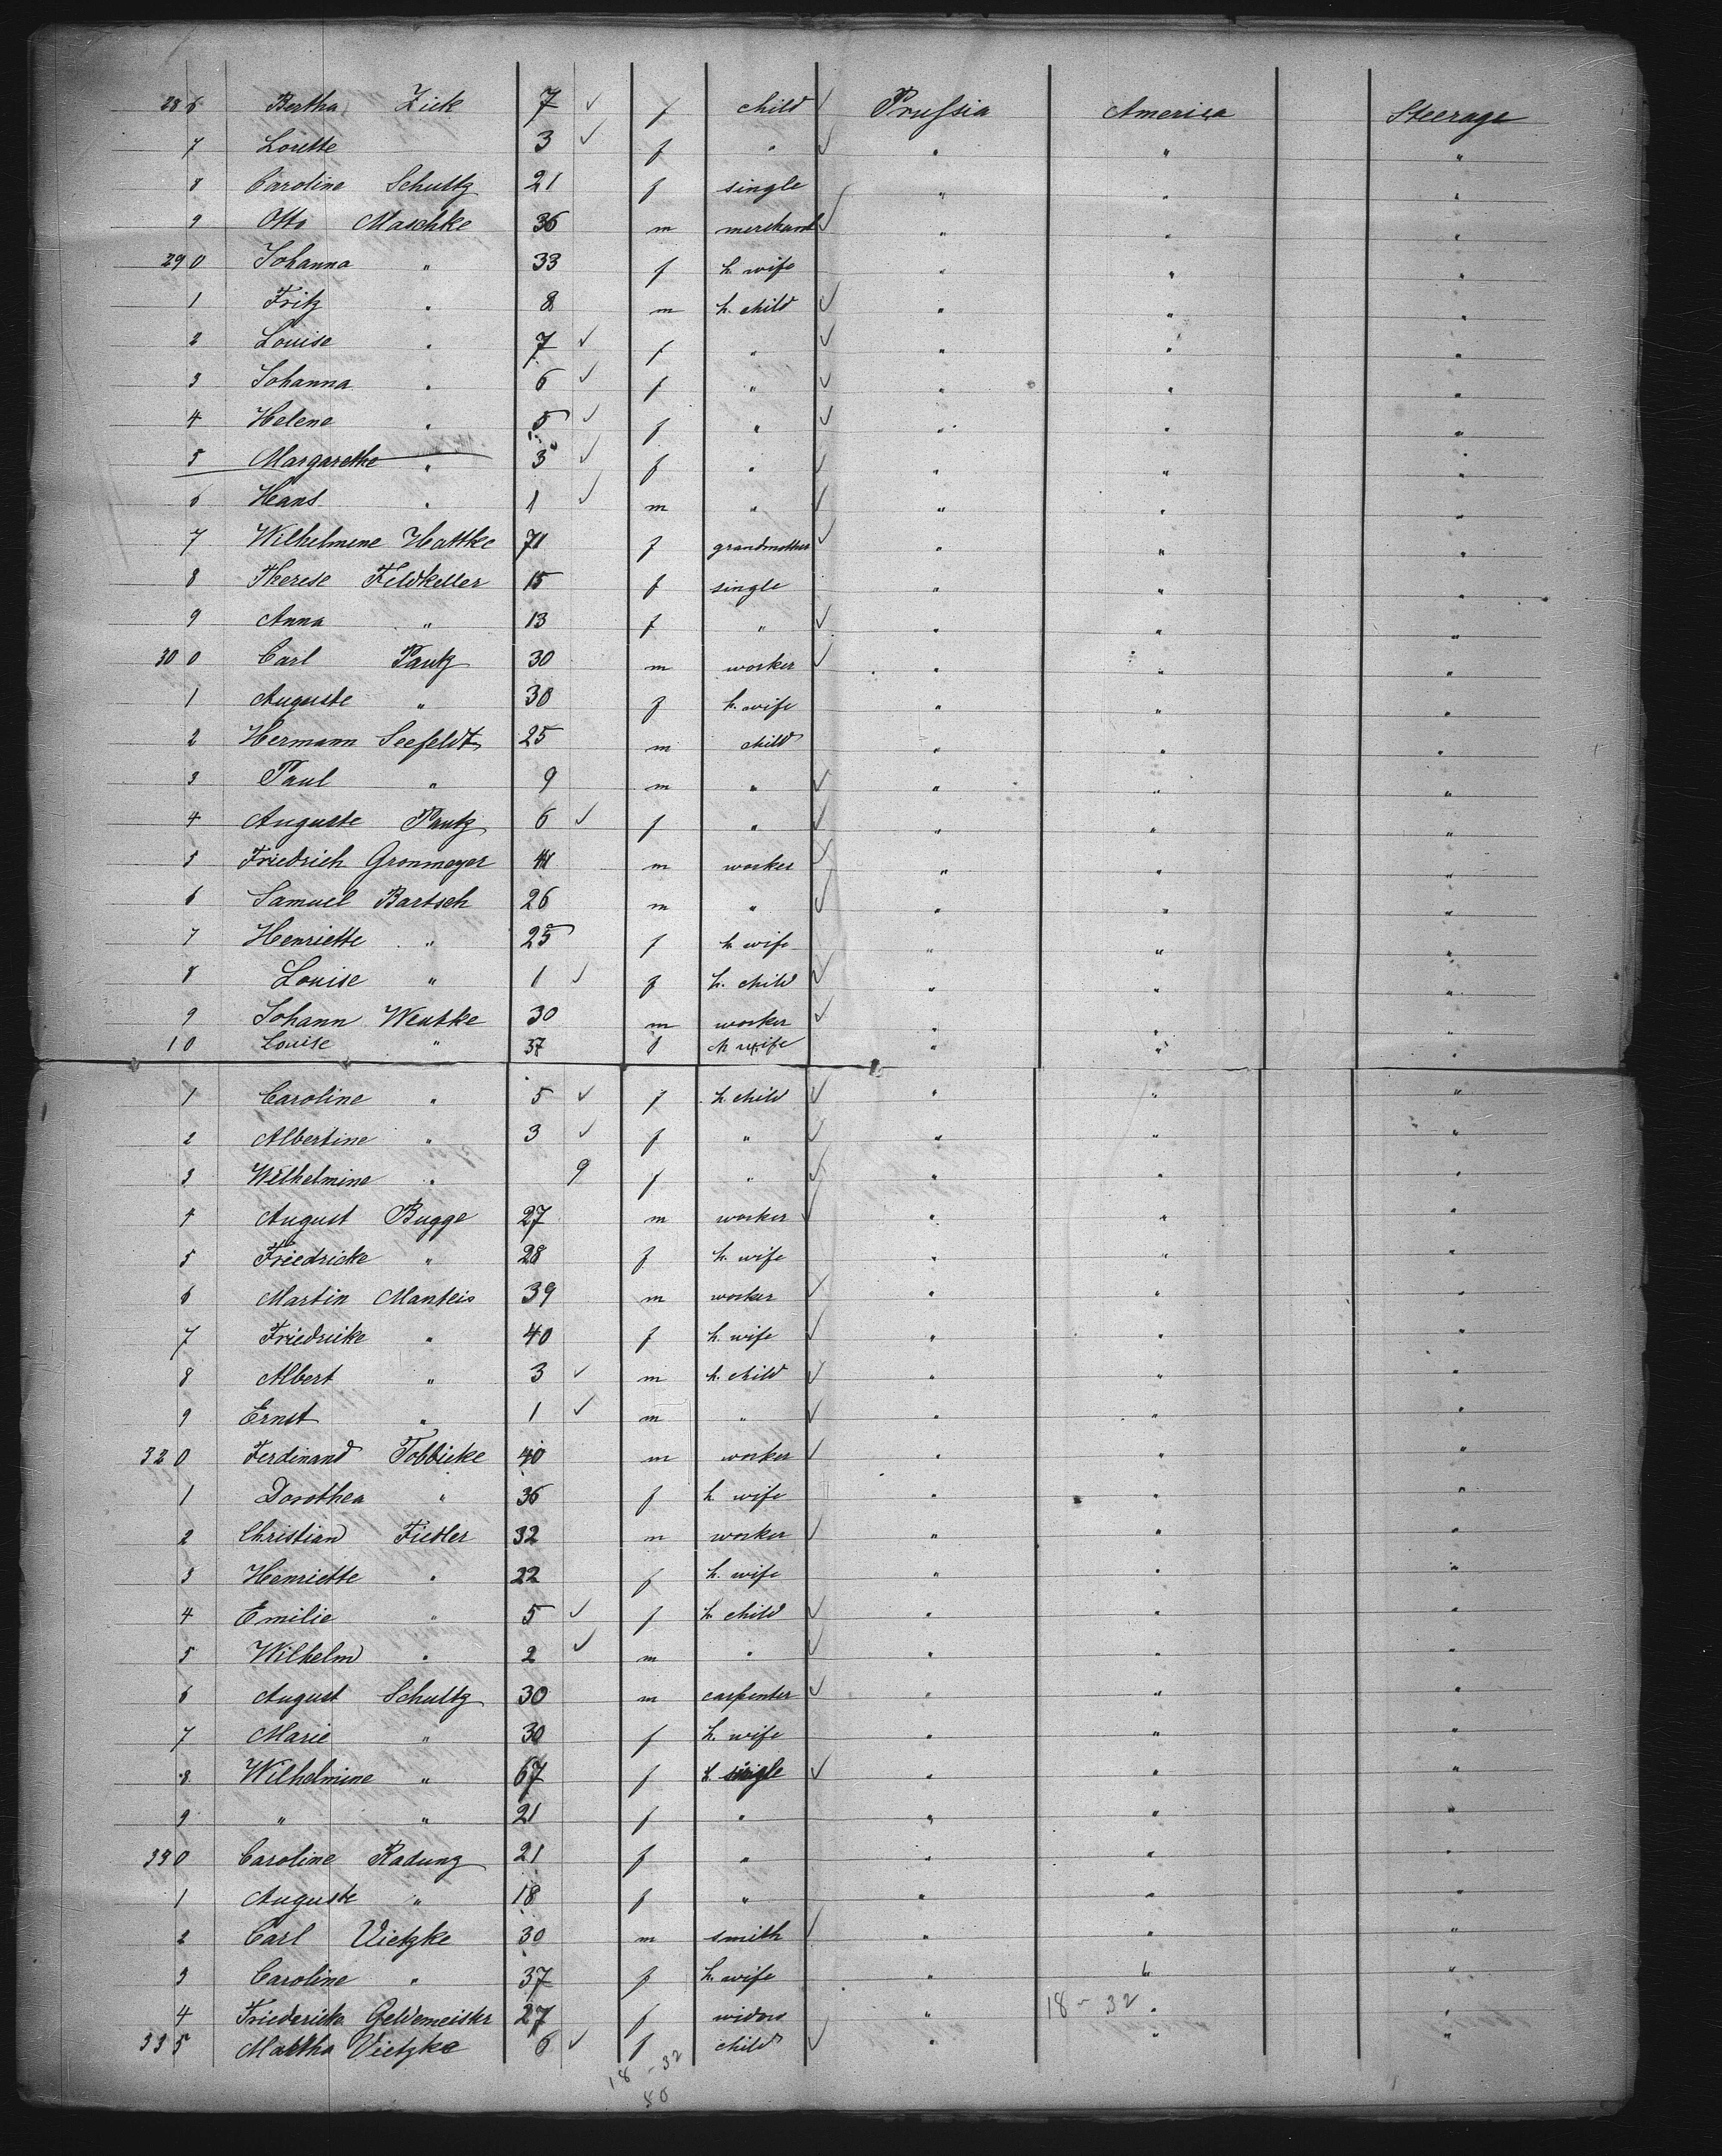 28 6 Bertha Zick 7 ✓ f child ✓ Prussia America Steerage
7 Lorette 3 ✓ f " ✓ " " "
8 Caroline Schultz 21 f single " " "
9 Otto Maschke 36 m merchant ✓ " " "
29 0 Johanna " 33 f h. wife " " "
1 Fritz " 8 m h. child ✓ " " "
2 Louise " 7 ✓ f " ✓ " " "
3 Johanna " 6 ✓ f " ✓ " " "
4 Helene " 5 ✓ f " ✓ " " "
5 Margarethe " 3 ✓ f " ✓ " " "
6 Hans " 1 ✓ m " ✓ " " "
7 Wilhelmine Hattke 71 f grandmother ✓ " " "
8 Therese Feldkeller 15 f single " " "
9 Anna " 13 f " ✓ " " "
30 0 Carl Pautz 30 m worker ✓ " " "
1 Auguste " 30 f h. wife " " "
2 Hermann Seefeldt 25 m child " " "
3 Paul " 9 m " ✓ " " "
4 Auguste Pautz 6 ✓ f " ✓ " " "
5 Friedrich Gronmeyer 41 m worker ✓ " " "
6 Samuel Bartsch 26 m " ✓ " " "
7 Henriette " 25 f h. wife " " "
8 Louise " 1 ✓ f h. child ✓ " " "
9 Johann Wentke 30 m worker ✓ " " "
10 Louise " 37 f h. wife " " "
1 Caroline " 5 ✓ f h. child ✓ " " "
2 Albertine " 3 ✓ f " ✓ " " "
3 Wilhelmine " 9 f " ✓ " " "
4 August Bugge 27 m worker ✓ " " "
5 Friedricke " 28 f h. wife " " "
6 Martin Manteis 39 m worker ✓ " " "
7 Friedricke " 40 f h. wife ✓ " " "
8 Albert " 3 ✓ m h. child ✓ " " "
9 Ernst " 1 ✓ m " ✓ " " "
32 0 Ferdinand Tobbicke 40 m worker ✓ " " "
1 Dorothea " 36 f h. wife " " "
2 Christian Fiedler 32 m worker ✓ " " "
3 Henriette " 22 f h. wife " " "
4 Emilie " 5 ✓ f h. child ✓ " " "
5 Wilhelm " 2 ✓ m " ✓ " " "
6 August Schultz 30 m carpenter ✓ " " "
7 Marie " 30 f h. wife " " "
8 Wilhelmine " 67 f single ✓ " " "
9 " " 21 f " " " "
33 0 Caroline Radung 21 f " " " "
1 Auguste " 18 f " " " "
2 Carl Vietzke 30 m smith ✓ " " "
3 Caroline " 37 f h. wife " " "
4 Friedericke Geldemeister 27 f widow " 18 - 32 " "
33 5 Martha Vietzke 6 ✓ f child ✓ " " "
18 - 32
50